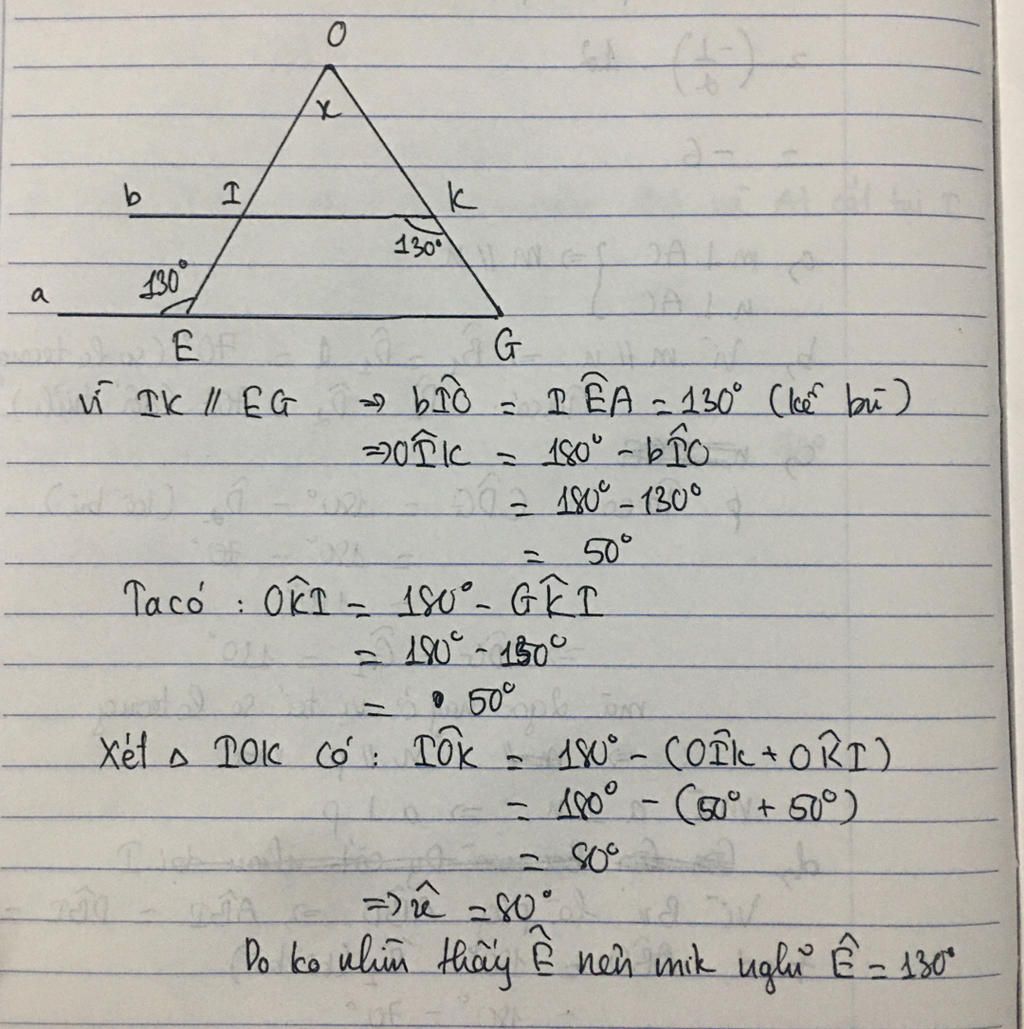 O
x
b I K
130°
130°
a
E G
Vì IK // EG => bÎO = IÊA = 130° (kề bù)
=> OÎK = 180° - bÎO
= 180° - 130°
= 50°
Ta có : OK̂I = 180° - GK̂I
= 180° - 130°
= 50°
Xét △ IOK có : IÔK = 180° - (OÎK + OK̂I)
= 180° - (50° + 50°)
= 80°
=> x̂ = 80°
Do ko nhìn thấy Ê nên mik nghĩ Ê = 130°